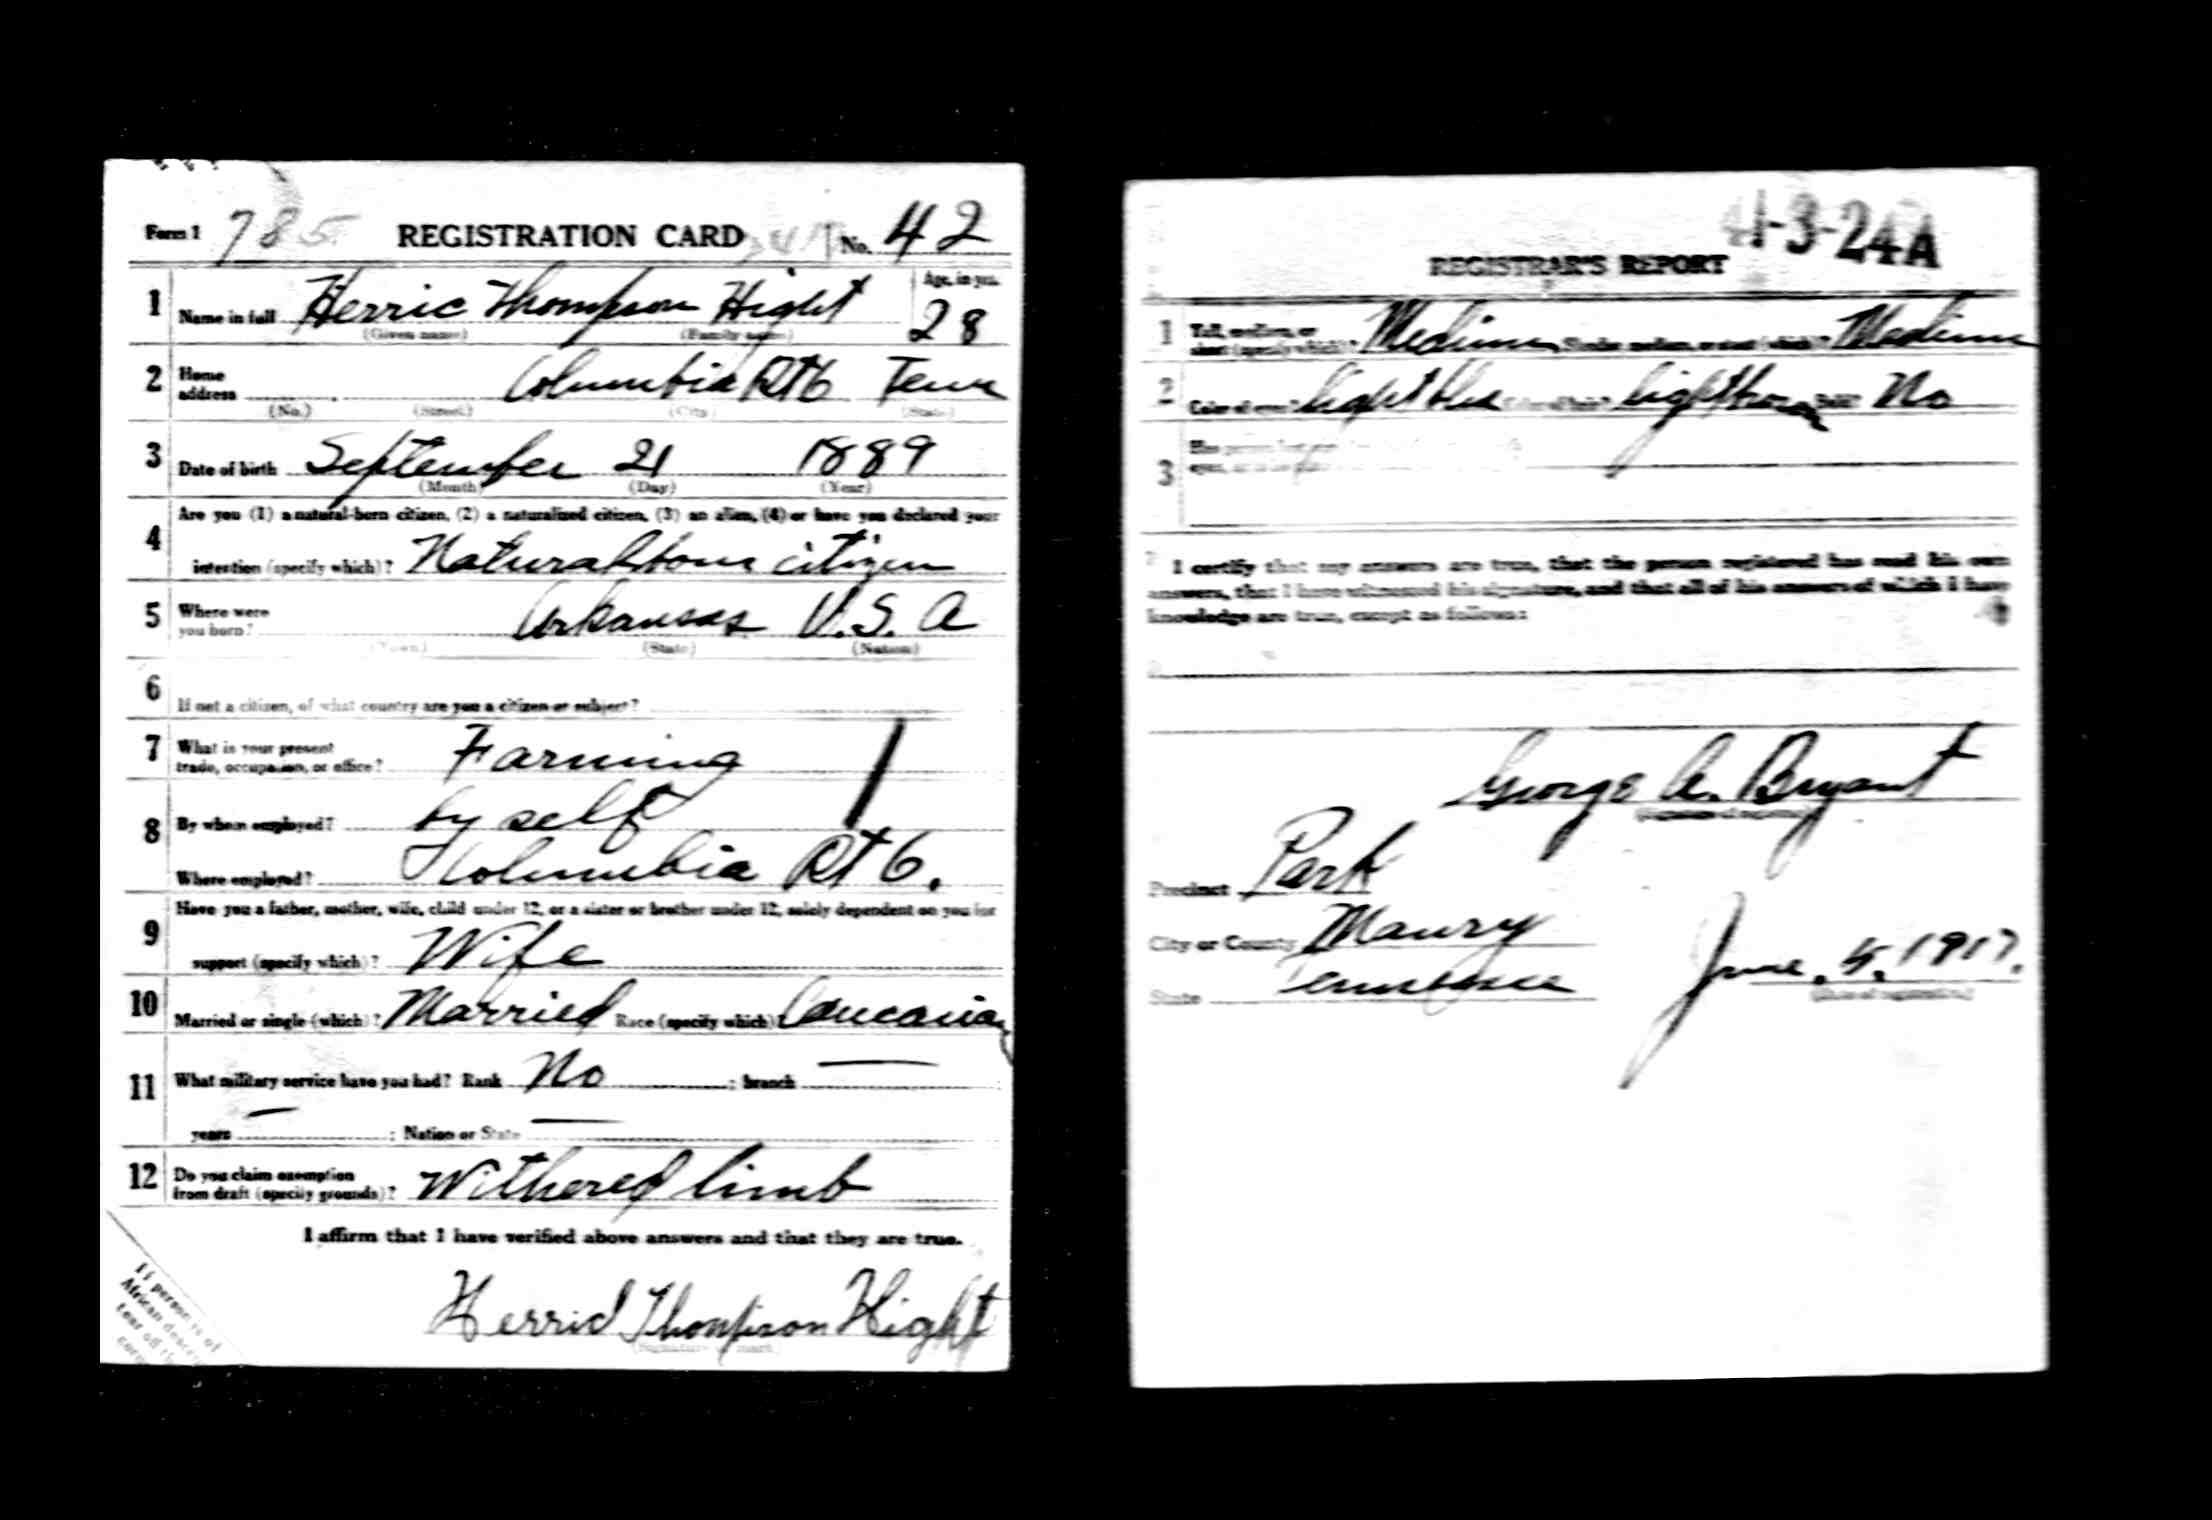 Form 1 785 REGISTRATION CARD No. 42
1 Name in full Herric Thompson Hight Age, in yrs. 28
(Given name) (Family name)
2 Home address Columbia Rt 6 Tenn
(No.) (Street) (City) (State)
3 Date of birth September 21 1889
(Month) (Day) (Year)
4 Are you (1) a natural-born citizen, (2) a naturalized citizen, (3) an alien, (4) or have you declared your
intention (specify which)? Natural born citizen
5 Where were you born? Arkansas U.S.A
(Town) (State) (Nation)
6 If not a citizen, of what country are you a citizen or subject?
7 What is your present trade, occupation, or office? Farming
8 By whom employed? by self
Where employed? Columbia Rt 6.
9 Have you a father, mother, wife, child under 12, or a sister or brother under 12, solely dependent on you for
support (specify which)? Wife
10 Married or single (which)? Married Race (specify which)? Caucasian
11 What military service have you had? Rank No ; branch —
years — ; Nation or State —
12 Do you claim exemption from draft (specify grounds)? Withered limb
I affirm that I have verified above answers and that they are true.
Herric Thompson Hight
(Signature or mark)
If person is of
African descent,
tear off this
corner
41-3-24A
REGISTRAR'S REPORT
1 Tall, medium, or short (specify which)? Medium Slender, medium, or stout (which)? Medium
2 Color of eyes? light blue Color of hair? light brown Bald? No
3 Has person lost
I certify that my answers are true, that the person registered has read his own
answers, that I have witnessed his signature, and that all of his answers of which I have
knowledge are true, except as follows:
George A. Bryant
(Signature of registrar)
Precinct Park
City or County Maury
State Tennessee June. 5. 1917.
(Date of registration)